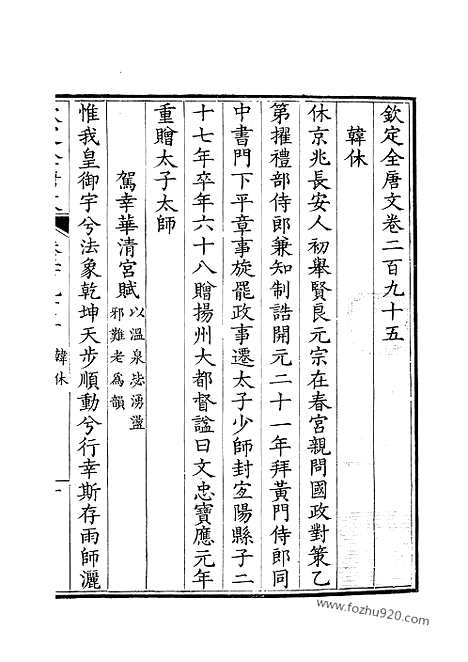 欽定全唐文卷二百九十五
韓休
休京兆長安人初舉賢良元宗在春宮親問國政對策乙
第擢禮部侍郎兼知制誥開元二十一年拜黃門侍郎同
中書門下平章事旋罷政事遷太子少師封宜陽縣子二
十七年卒年六十八贈揚州大都督諡曰文忠寶應元年
重贈太子太師
駕幸華清宮賦以溫泉毖湧盪
邪難老爲韻
惟我皇御宇兮法象乾坤天步順動兮行幸斯存雨師灑
韓休
一
www.fozhu920.com